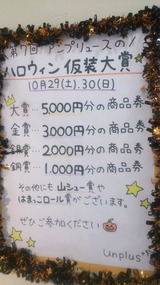 第7回 アンプリュースの
ハロウィン仮装大賞
10月29(土).30(日)
大賞…5,000円分の商品券
金賞…3,000円分の商品券
銀賞…2,000円分の商品券
銅賞…1,000円分の商品券
その他にも 山シュー賞や
はまっこロール賞がございます。
ぜひご参加ください
unplus